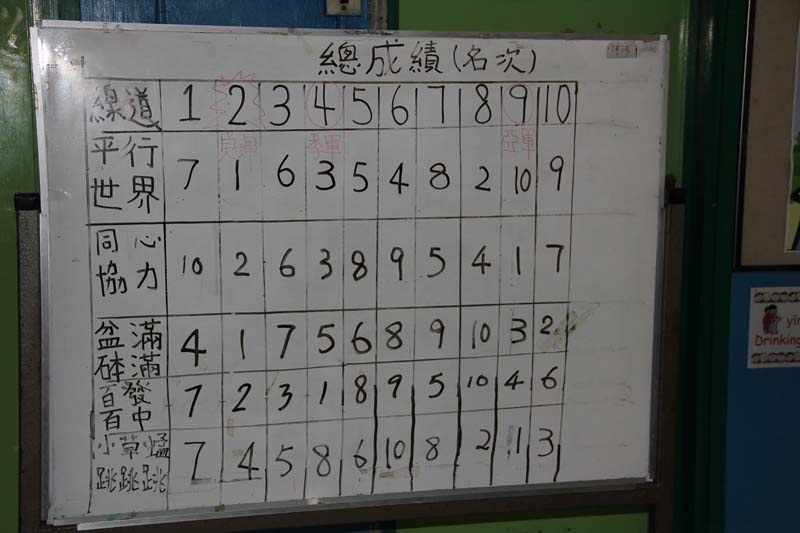 總成績(名次)
線道 1 2 3 4 5 6 7 8 9 10
季軍 亞軍
平行
世界 7 1 6 3 5 4 8 2 10 9
同心
協力 10 2 6 3 8 9 5 4 1 7
盆滿
砵滿 4 1 7 5 6 8 9 10 3 2
百發
百中 7 2 3 1 8 9 5 10 4 6
小草蜢
跳跳跳 7 4 5 8 6 10 8 2 1 3
Drinking